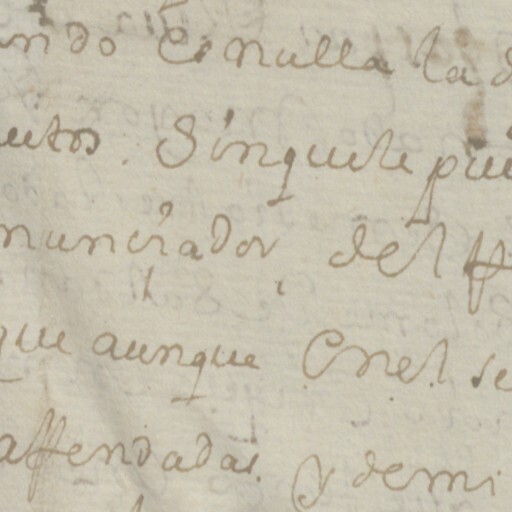 ndo Es nulla la d
utos. Sinquele pue
nunciador del ff
que aunque Enel se
affendadas. y demi